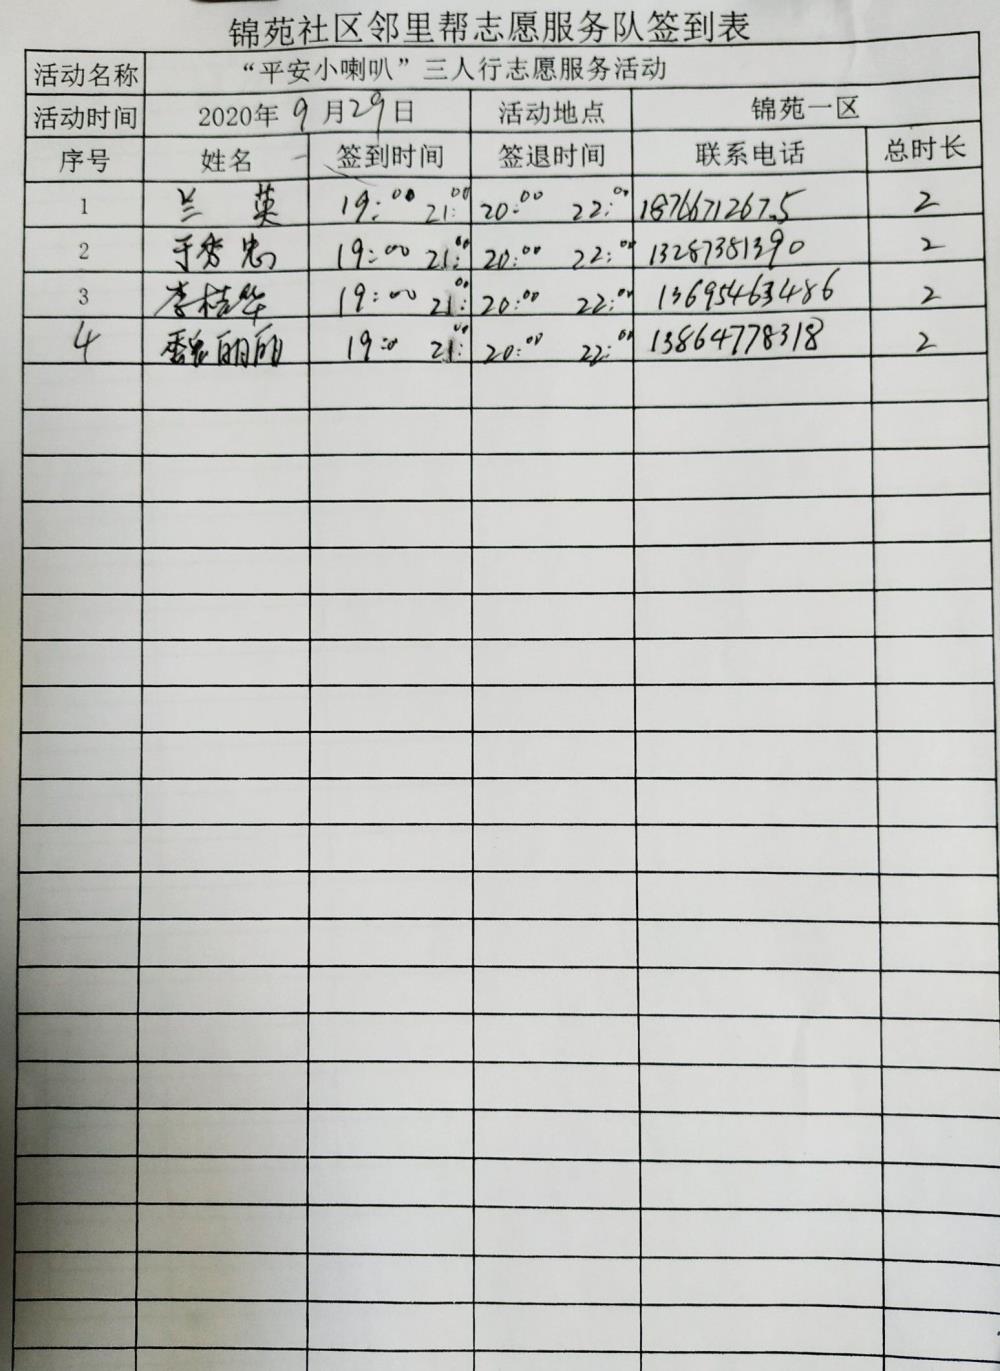 锦苑社区邻里帮志愿服务队签到表
活动名称 “平安小喇叭”三人行志愿服务活动
活动时间 2020年 9 月 29 日 活动地点 锦苑一区
序号 姓名 签到时间 签退时间 联系电话 总时长
1 兰英 19:00 21:00 20:00 22:00 18766712675 2
2 于秀忠 19:00 21:00 20:00 22:00 13287381390 2
3 李桂华 19:00 21:00 20:00 22:00 13695463486 2
4 魏丽丽 19:0 21:00 20:00 22:00 13864778318 2